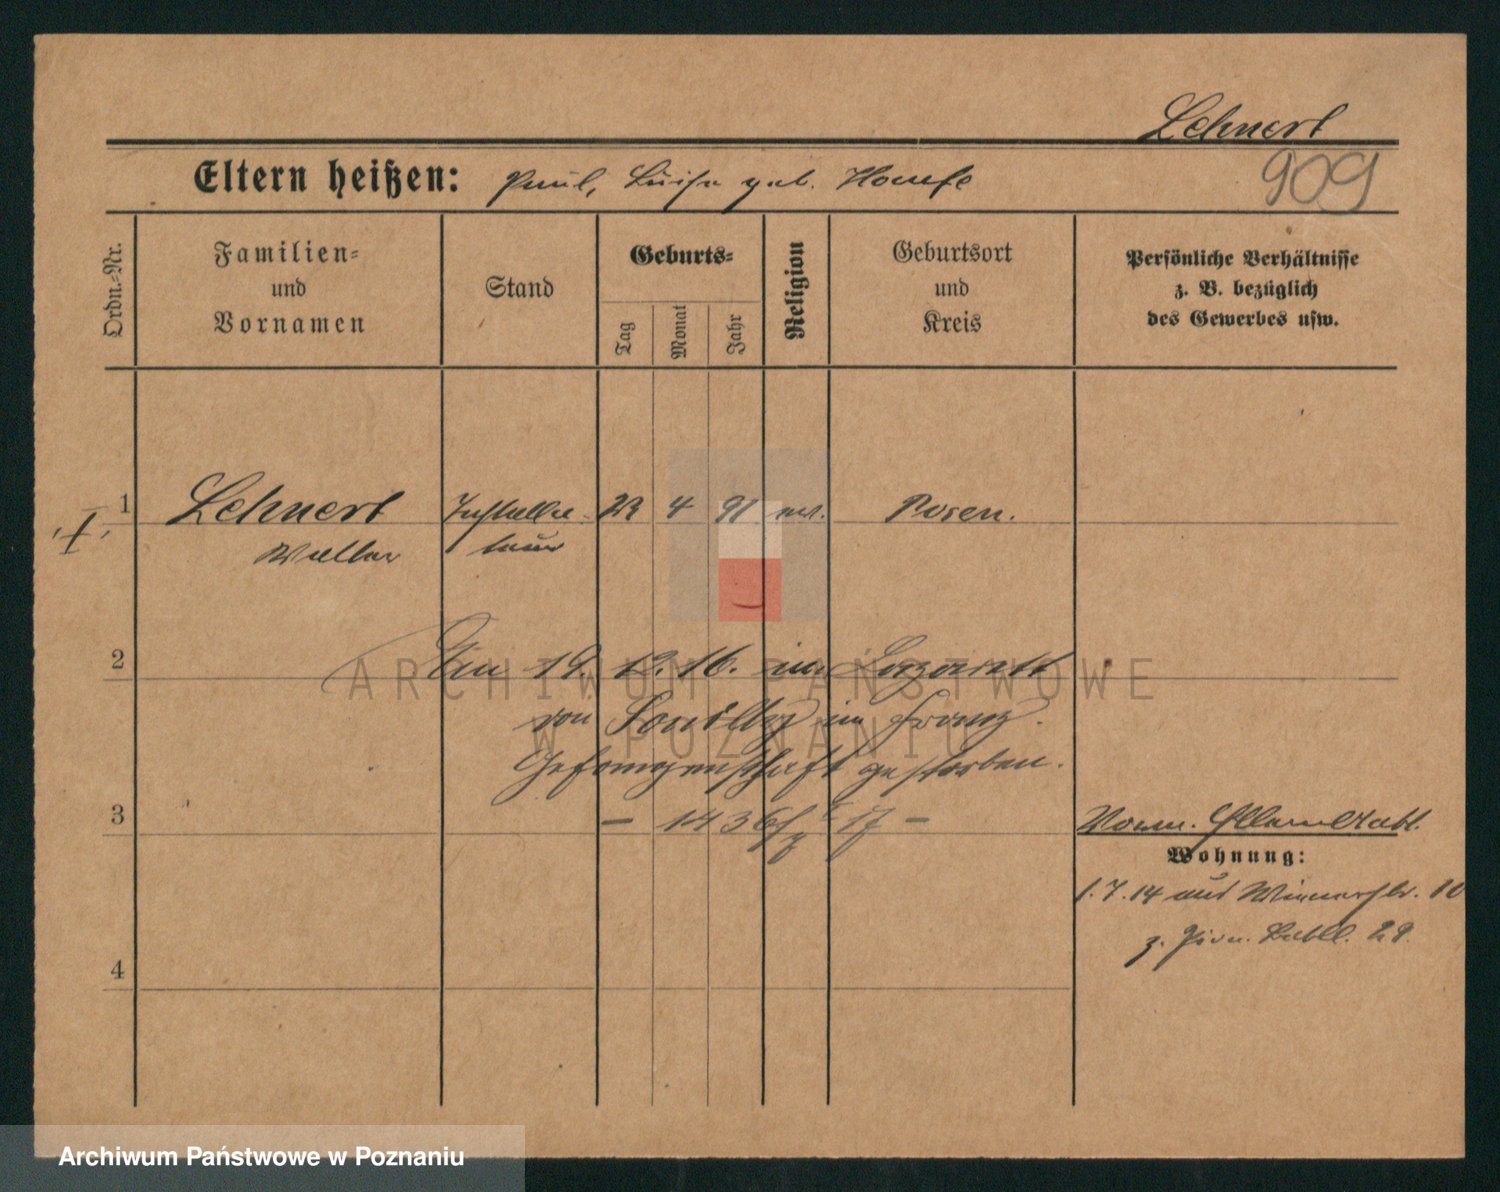 Lehnert
Eltern heißen: Paul, Luise geb.
909
Ordn.-Nr.
Familien-
und
Vornamen
Stand
Geburts-
Tag
Monat
Jahr
Religion
Geburtsort
und
Kreis
Persönliche Verhältnisse
z. B. bezüglich
des Gewerbes usw.
1 Lehnert Installa- 23 4 91 ev. Posen.
Walter teur
2 Am 19. 12. 16. im Lazarett
von in franz.
Gefangenschaft gestorben.
3
– 1436/ 17 –
Wohnung:
1.7.14 aus 10
z. 29.
4
ARCHIWUM PAŃSTWOWE
W POZNANIU
Archiwum Państwowe w Poznaniu